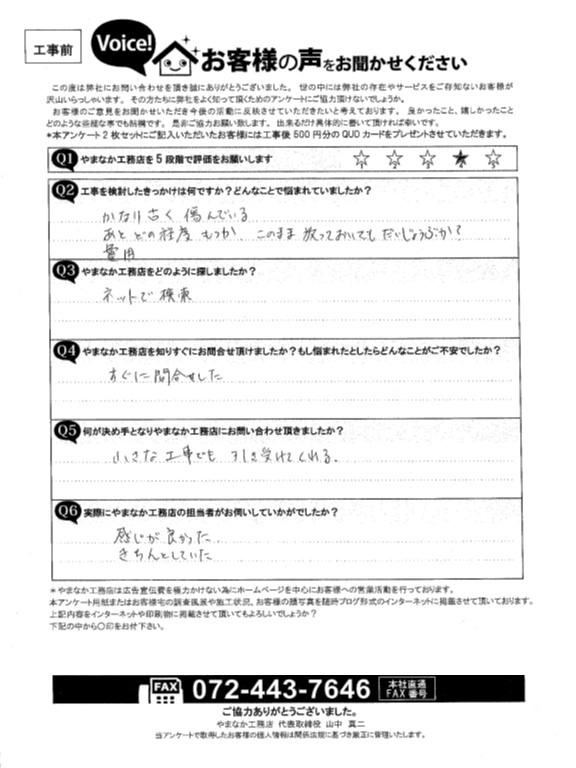 工事前
Voice!
お客様の声をお聞かせください
この度は弊社にお問い合わせを頂き誠にありがとうございました。世の中には弊社の存在やサービスをご存知ないお客様が
沢山いらっしゃいます。その方たちに弊社をよく知って頂くためのアンケートにご協力頂けないでしょうか。
お客様のご意見をお聞かせいただき今後の活動に反映させていただきたいと考えております。良かったこと、嬉しかったこと
どのような些細な事でも結構です。是非ご協力お願い致します。出来るだけ具体的に書いて頂ければ幸いです。
*本アンケート2枚セットにご記入いただいたお客様には工事後500円分のQUOカードをプレゼントさせていただきます。
Q1 やまなか工務店を5段階で評価をお願いします
1 2 3 4 5
Q2 工事を検討したきっかけは何ですか?どんなことで悩まれていましたか?
かなり古く傷んでいる
あとどの程度もつか、このまま放っておいてもだいじょうぶか?
費用
Q3 やまなか工務店をどのように探しましたか?
ネットで検索
Q4 やまなか工務店を知りすぐにお問合せ頂けましたか?もし悩まれたとしたらどんなことがご不安でしたか?
すぐに問合せした
Q5 何が決め手となりやまなか工務店にお問い合わせ頂きましたか?
小さな工事でも引き受けてくれる。
Q6 実際にやまなか工務店の担当者がお伺いしていかがでしたか?
感じが良かった
きちんとしていた
*やまなか工務店は広告宣伝費を極力かけない為にホームページを中心にお客様への営業活動を行っております。
本アンケート用紙またはお客様宅の調査風景や施工状況、お客様の顔写真を随時ブログ形式のインターネットに掲載させて頂いております。
上記内容をインターネットや印刷物に掲載させて頂いてもよろしいでしょうか?
下記の中から〇印をお付下さい。
FAX 072-443-7646 本社直通
FAX番号
ご協力ありがとうございました。
やまなか工務店 代表取締役 山中 真二
当アンケートで取得したお客様の個人情報は関係法規に基づき厳正に管理いたします。